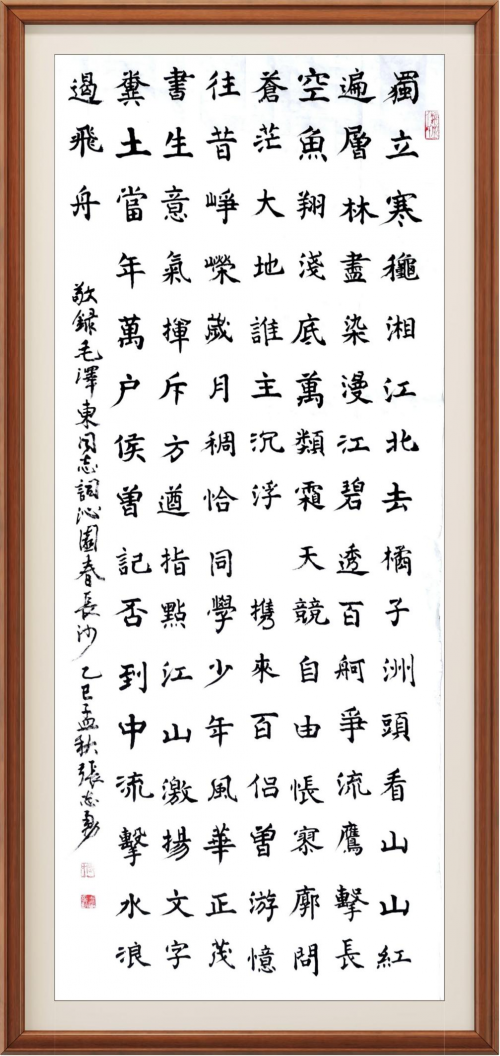 獨立寒穐湘江北去橘子洲頭看山山紅
遍層林盡染漫江碧透百舸爭流鷹擊長
空魚翔淺底萬類霜天競自由悵寥廓問
蒼茫大地誰主沉浮 携來百侶曾游憶
往昔崢嶸歲月稠恰同學少年風華正茂
書生意氣揮斥方遒指點江山激揚文字
糞土當年萬户侯曾記否到中流擊水浪
遏飛舟
敬録毛澤東同志詞沁園春長沙 乙巳孟秋張志勇